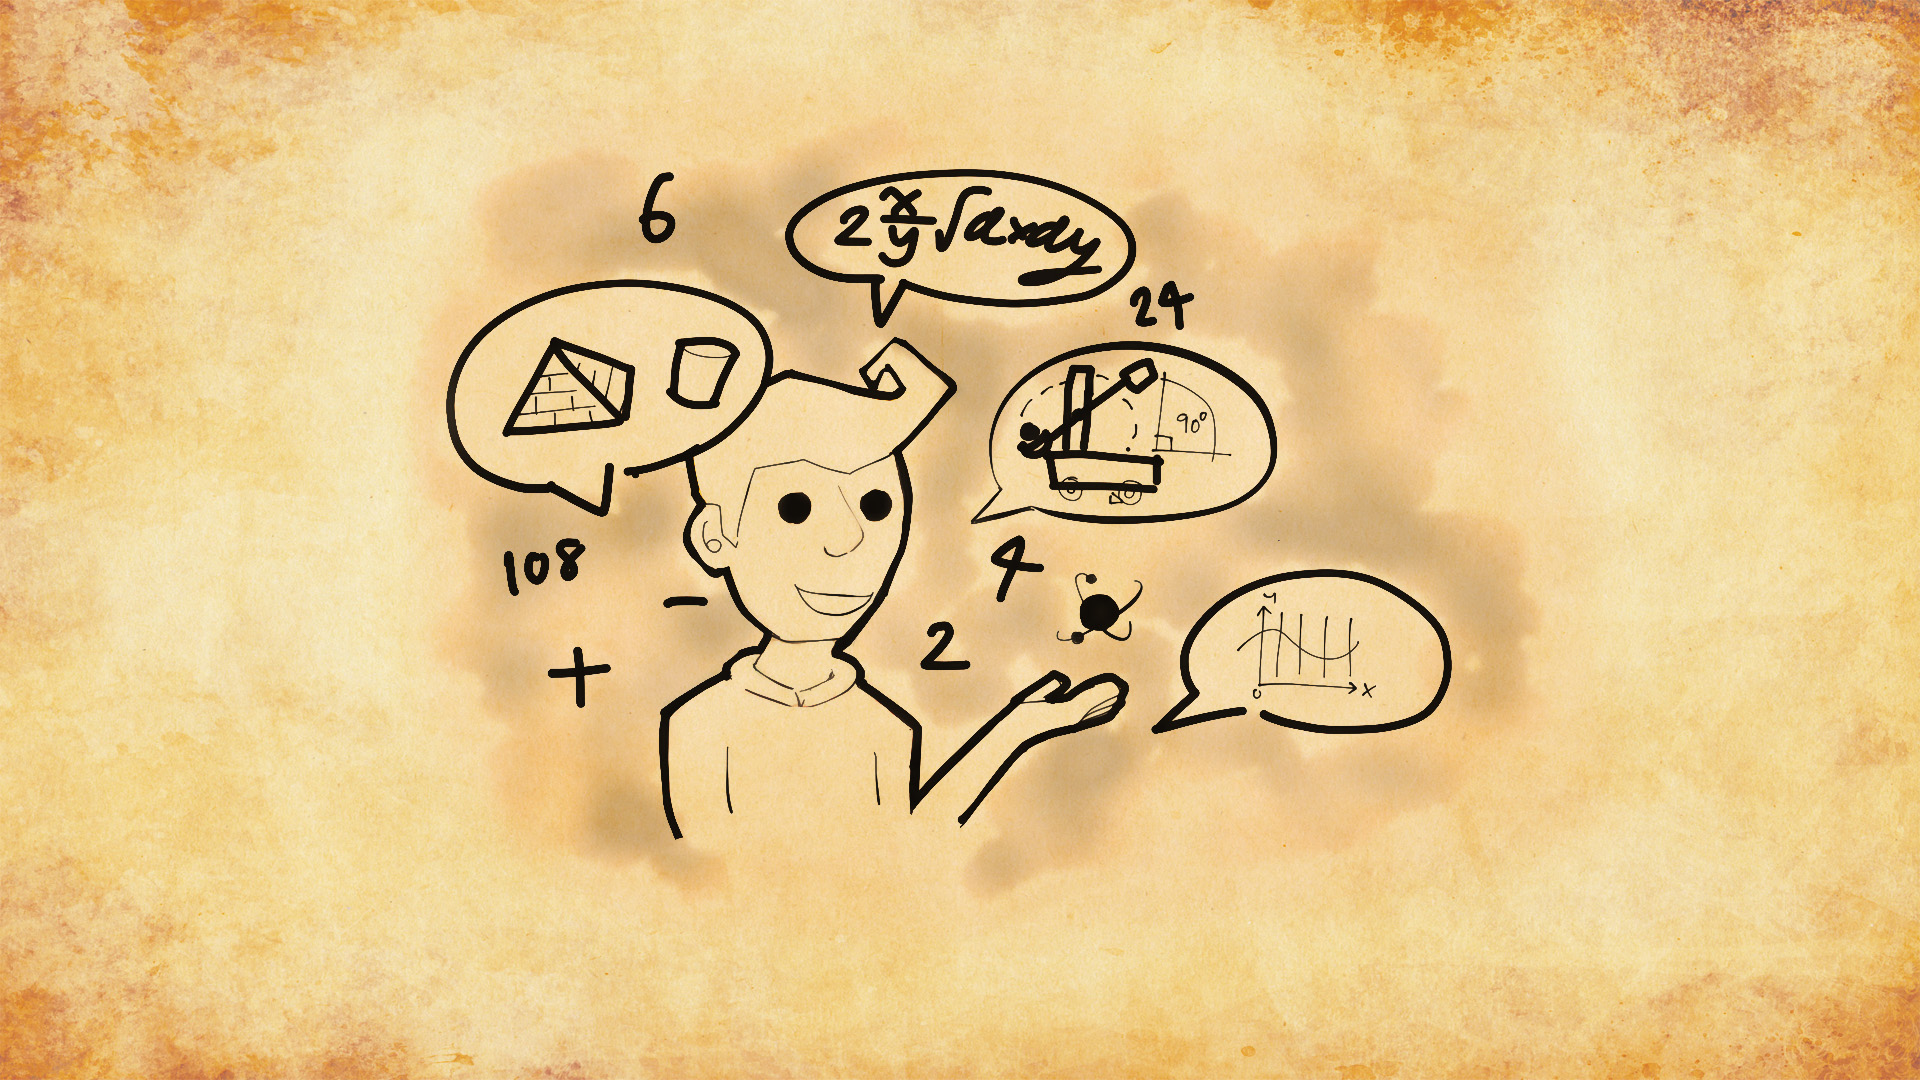 6
2 x/y ∫dxdy
24
90°
108
4
-
2
+
y
0
x